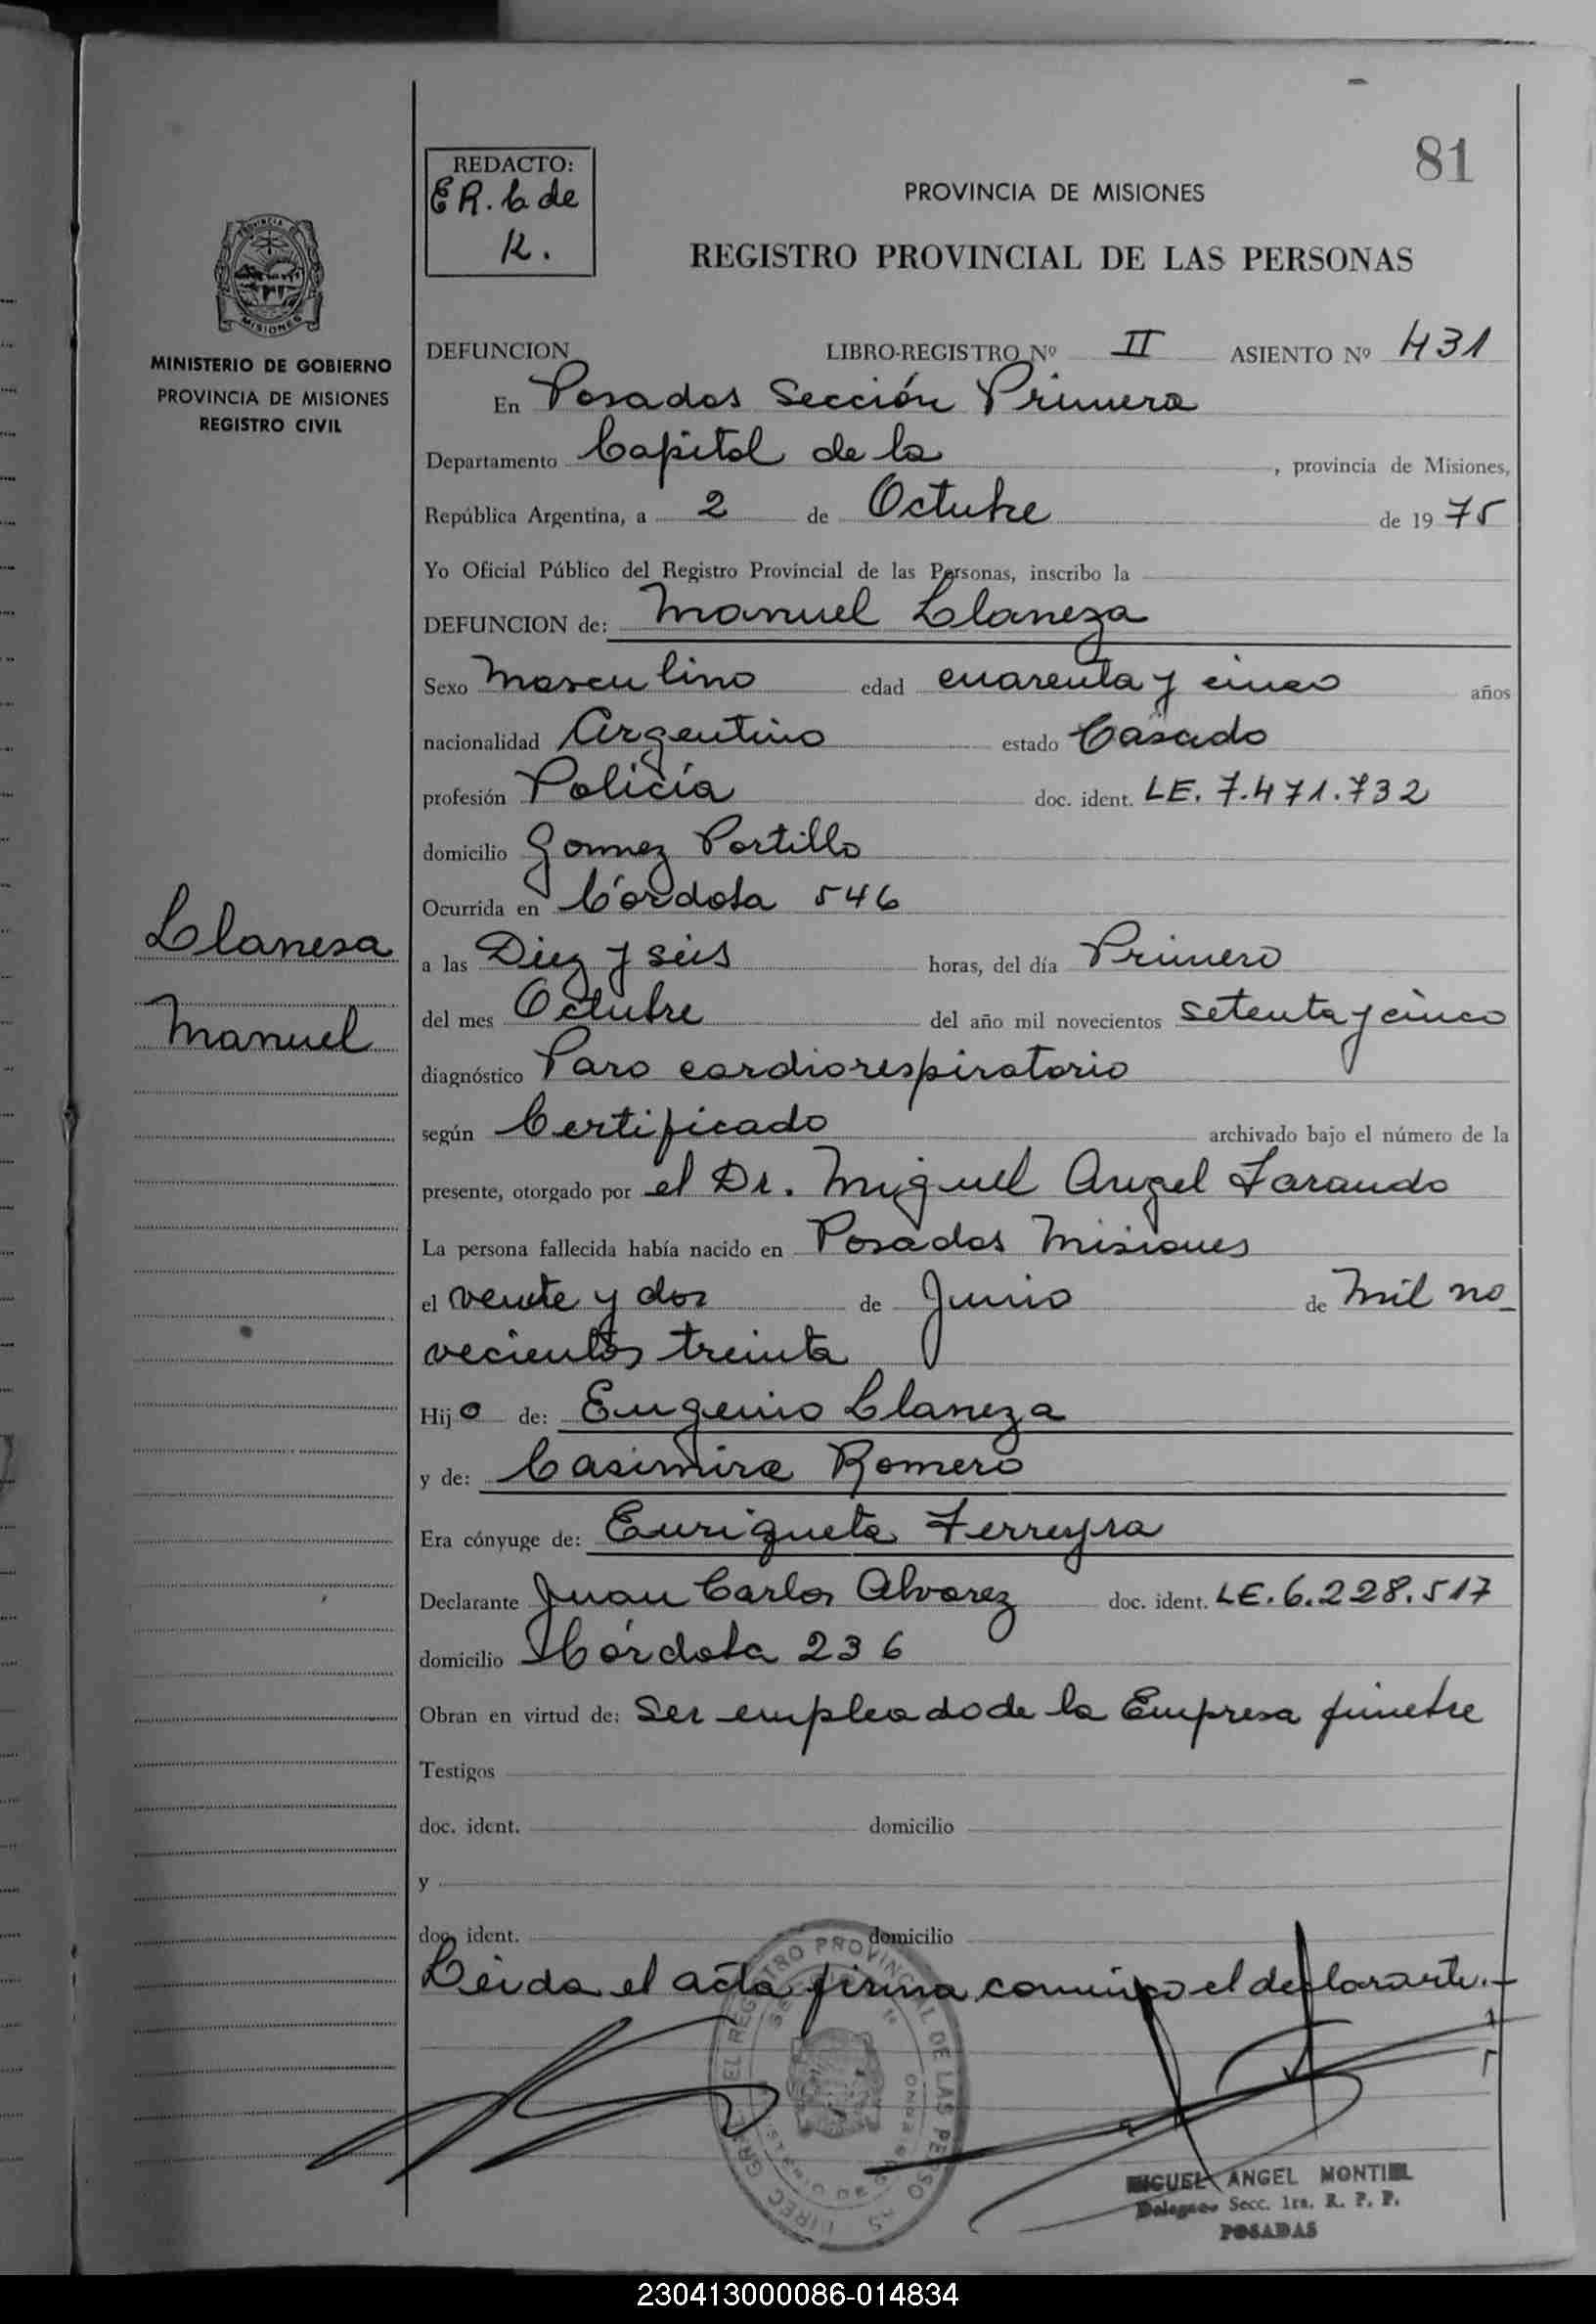 81
REDACTO:
E R. G de
K.
PROVINCIA DE MISIONES
REGISTRO PROVINCIAL DE LAS PERSONAS
MISIONES
MINISTERIO DE GOBIERNO
PROVINCIA DE MISIONES
REGISTRO CIVIL
DEFUNCION LIBRO-REGISTRO Nº II ASIENTO Nº 431
En Posadas Sección Primera
Departamento Capital de la , provincia de Misiones,
República Argentina, a 2 de Octubre de 1975
Yo Oficial Público del Registro Provincial de las Personas, inscribo la
DEFUNCION de: Manuel Llaneza
Sexo Masculino edad cuarenta y cinco años
nacionalidad Argentino estado Casado
profesión Policía doc. ident. LE. 7.471.732
domicilio Gomez Portillo
Ocurrida en Córdoba 546
Llanesa
a las Diez y seis horas, del día Primero
Manuel
del mes Octubre del año mil novecientos setenta y cinco
diagnóstico Paro cardiorespiratorio
según Certificado archivado bajo el número de la
presente, otorgado por el Dr. Miguel Angel Farando
La persona fallecida había nacido en Posadas Misiones
el veinte y dos de Junio de Mil no_
vecientos treinta
Hijo de: Eugenio Llaneza
y de: Casimira Romero
Era cónyuge de: Enriqueta Ferreyra
Declarante Juan Carlos Alvarez doc. ident. LE. 6.228.517
domicilio Córdoba 236
Obran en virtud de: Ser empleado de la Empresa fúnebre
Testigos
doc. ident. domicilio
y
doc. ident. domicilio
Leida el acta firma conmigo el declarante.-
MIGUEL ANGEL MONTIEL
Delegado Secc. 1ra. R. P. P.
POSADAS
230413000086-014834